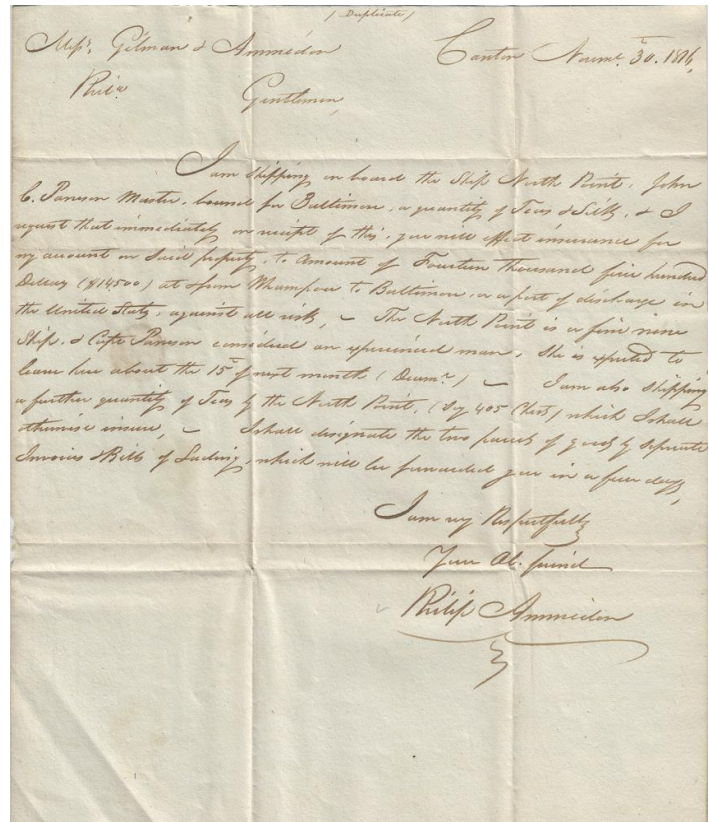 (Duplicate)
Messrs. Gilman & Ammidon Canton Novmr. 30. 1816,
Phila.
Gentlemen,
I am shipping on board the Ship North Point, John
C. Pearson Master, bound for Baltimore, a quantity of Teas & Silks, & I
request that immediately on receipt of this, you will effect insurance for
my account on said property, to Amount of Fourteen Thousand five hundred
Dollars ($14500) at & from Whampoa to Baltimore, or a port of discharge in
the United States, against all risks, – The North Point is a fine new
Ship, & Capt Pearson considered an experienced man. She is expected to
leave here about the 15th of next month (Decemr.) – I am also shipping
a further quantity of Teas by the North Point, (Say 405 Chests) which I shall
otherwise insure, – I shall designate the two parcels of goods by seperate
Invoices & Bills of Lading, which will be forwarded you in a few days,
I am very Respectfully
Your Ob. friend
Philip Ammidon